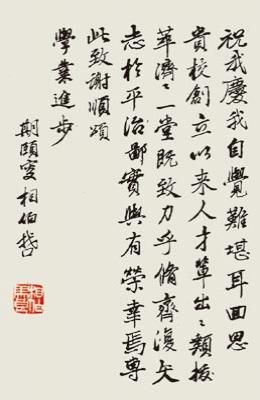 祝我慶我自覺難堪耳回思
貴校創立以來人才輩出〻類拔
華濟〻一堂既致力乎脩齊復矢
志於平治鄙實與有榮幸焉專
此致謝順頌
學業進步
期頤叟相伯